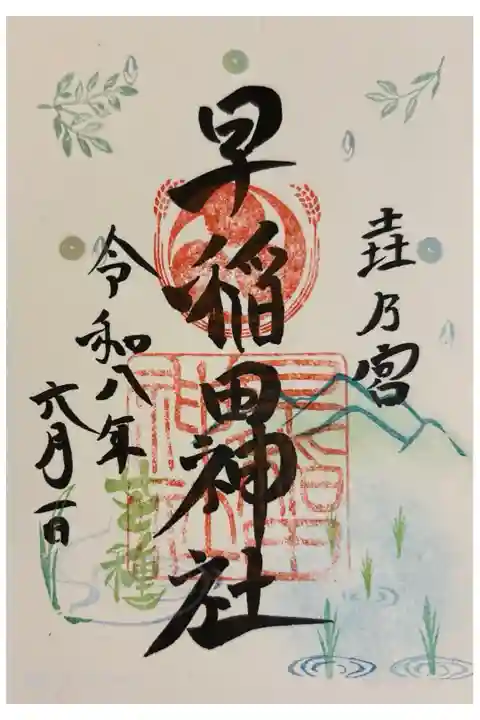 垚乃宮
早稲田神社
令和八年
六月一日
芒種